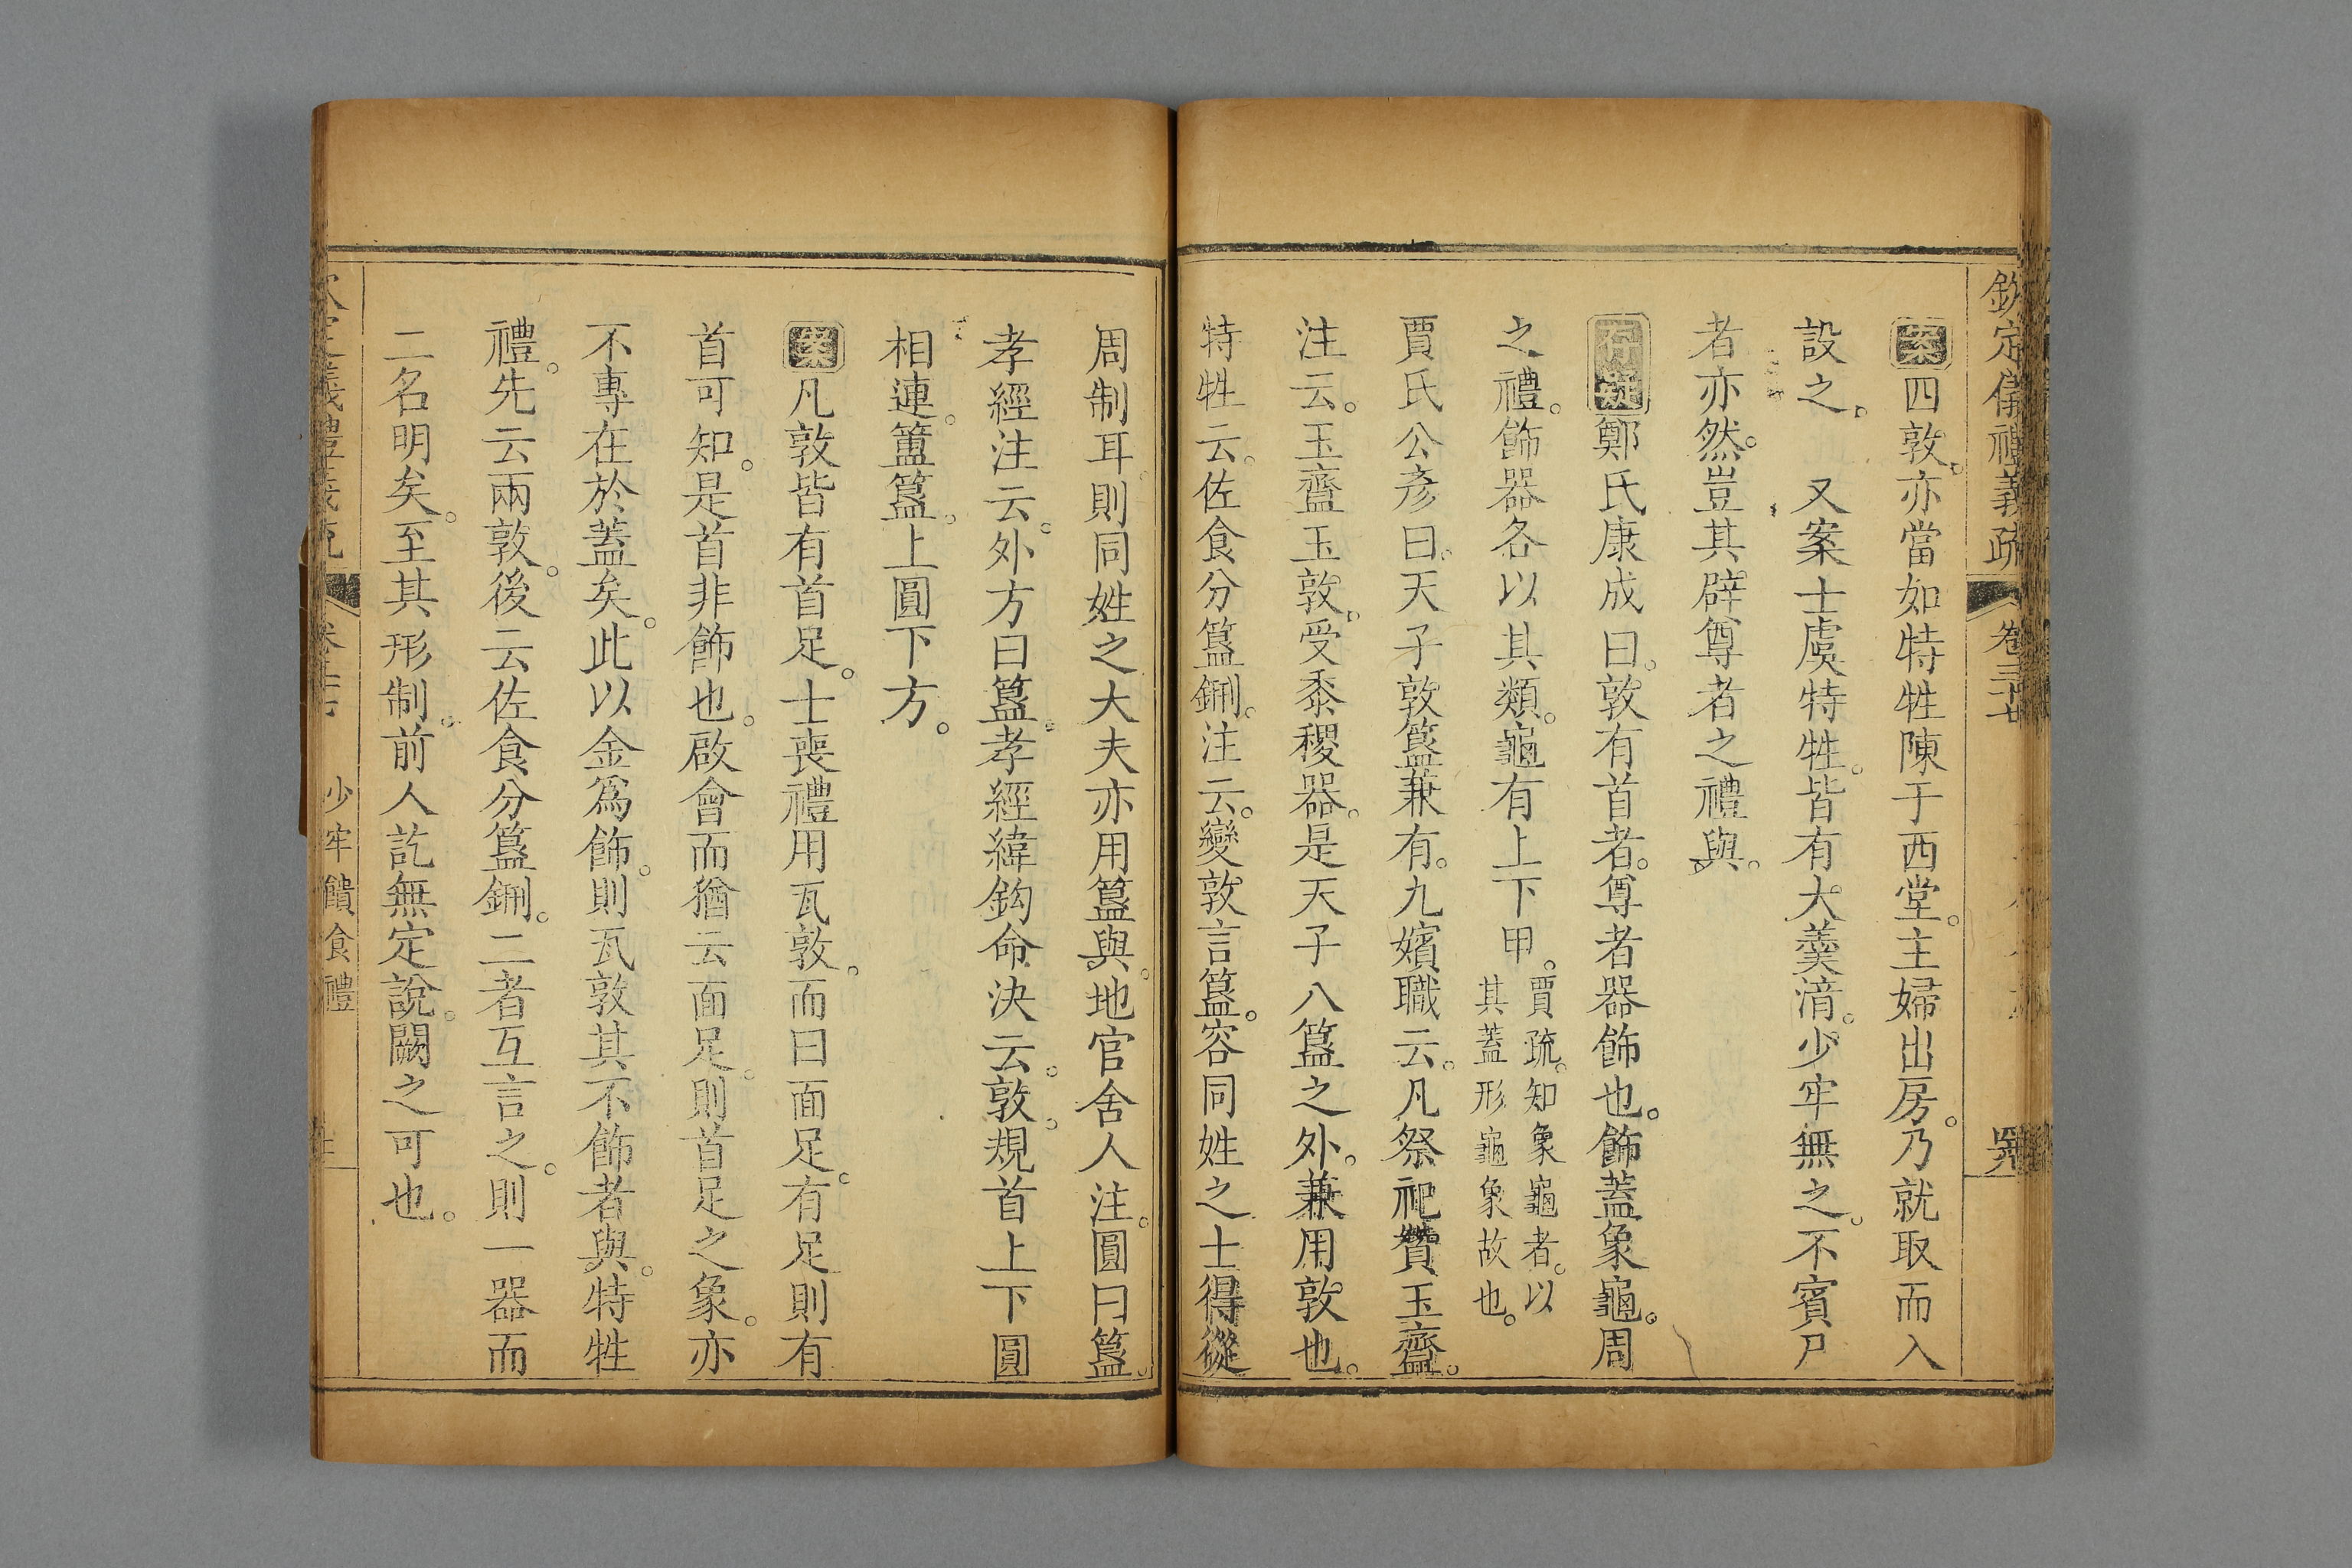 欽定儀禮義疏 卷三十七
案四敦。亦當如特牲陳于西堂。主婦出房。乃就取而入
設之。 又案士虞特牲。皆有大羹湆。少牢無之。不賓尸
者亦然。豈其辟尊者之禮與。
存疑鄭氏康成曰。敦有首者。尊者器飾也。飾蓋象龜。周
之禮。飾器各以其類。龜有上下甲。賈疏。知象龜者。以
其蓋形龜象故也。
賈氏公彥曰。天子敦簋兼有。九嬪職云。凡祭祀贊玉齍。
注云。玉齍玉敦。受黍稷器。是天子八簋之外。兼用敦也。
特牲云。佐食分簋鉶。注云。變敦言簋。容同姓之士得從
周制耳。則同姓之大夫亦用簋與。地官舍人注。圓曰簋。
孝經注云。外方曰簋。孝經緯鈎命決云。敦。規首上下圓
相連。簠簋。上圓下方。
案凡敦皆有首足。士喪禮用瓦敦。而曰面足。有足則有
首可知。是首非飾也。啟會而猶云面足。則首足之象。亦
不專在於蓋矣。此以金爲飾。則瓦敦其不飾者與。特牲
禮。先云兩敦。後云佐食分簋鉶。二者互言之。則一器而
二名明矣。至其形制。前人訖無定說。闕之可也。
義禮義疏 少牢饋食禮